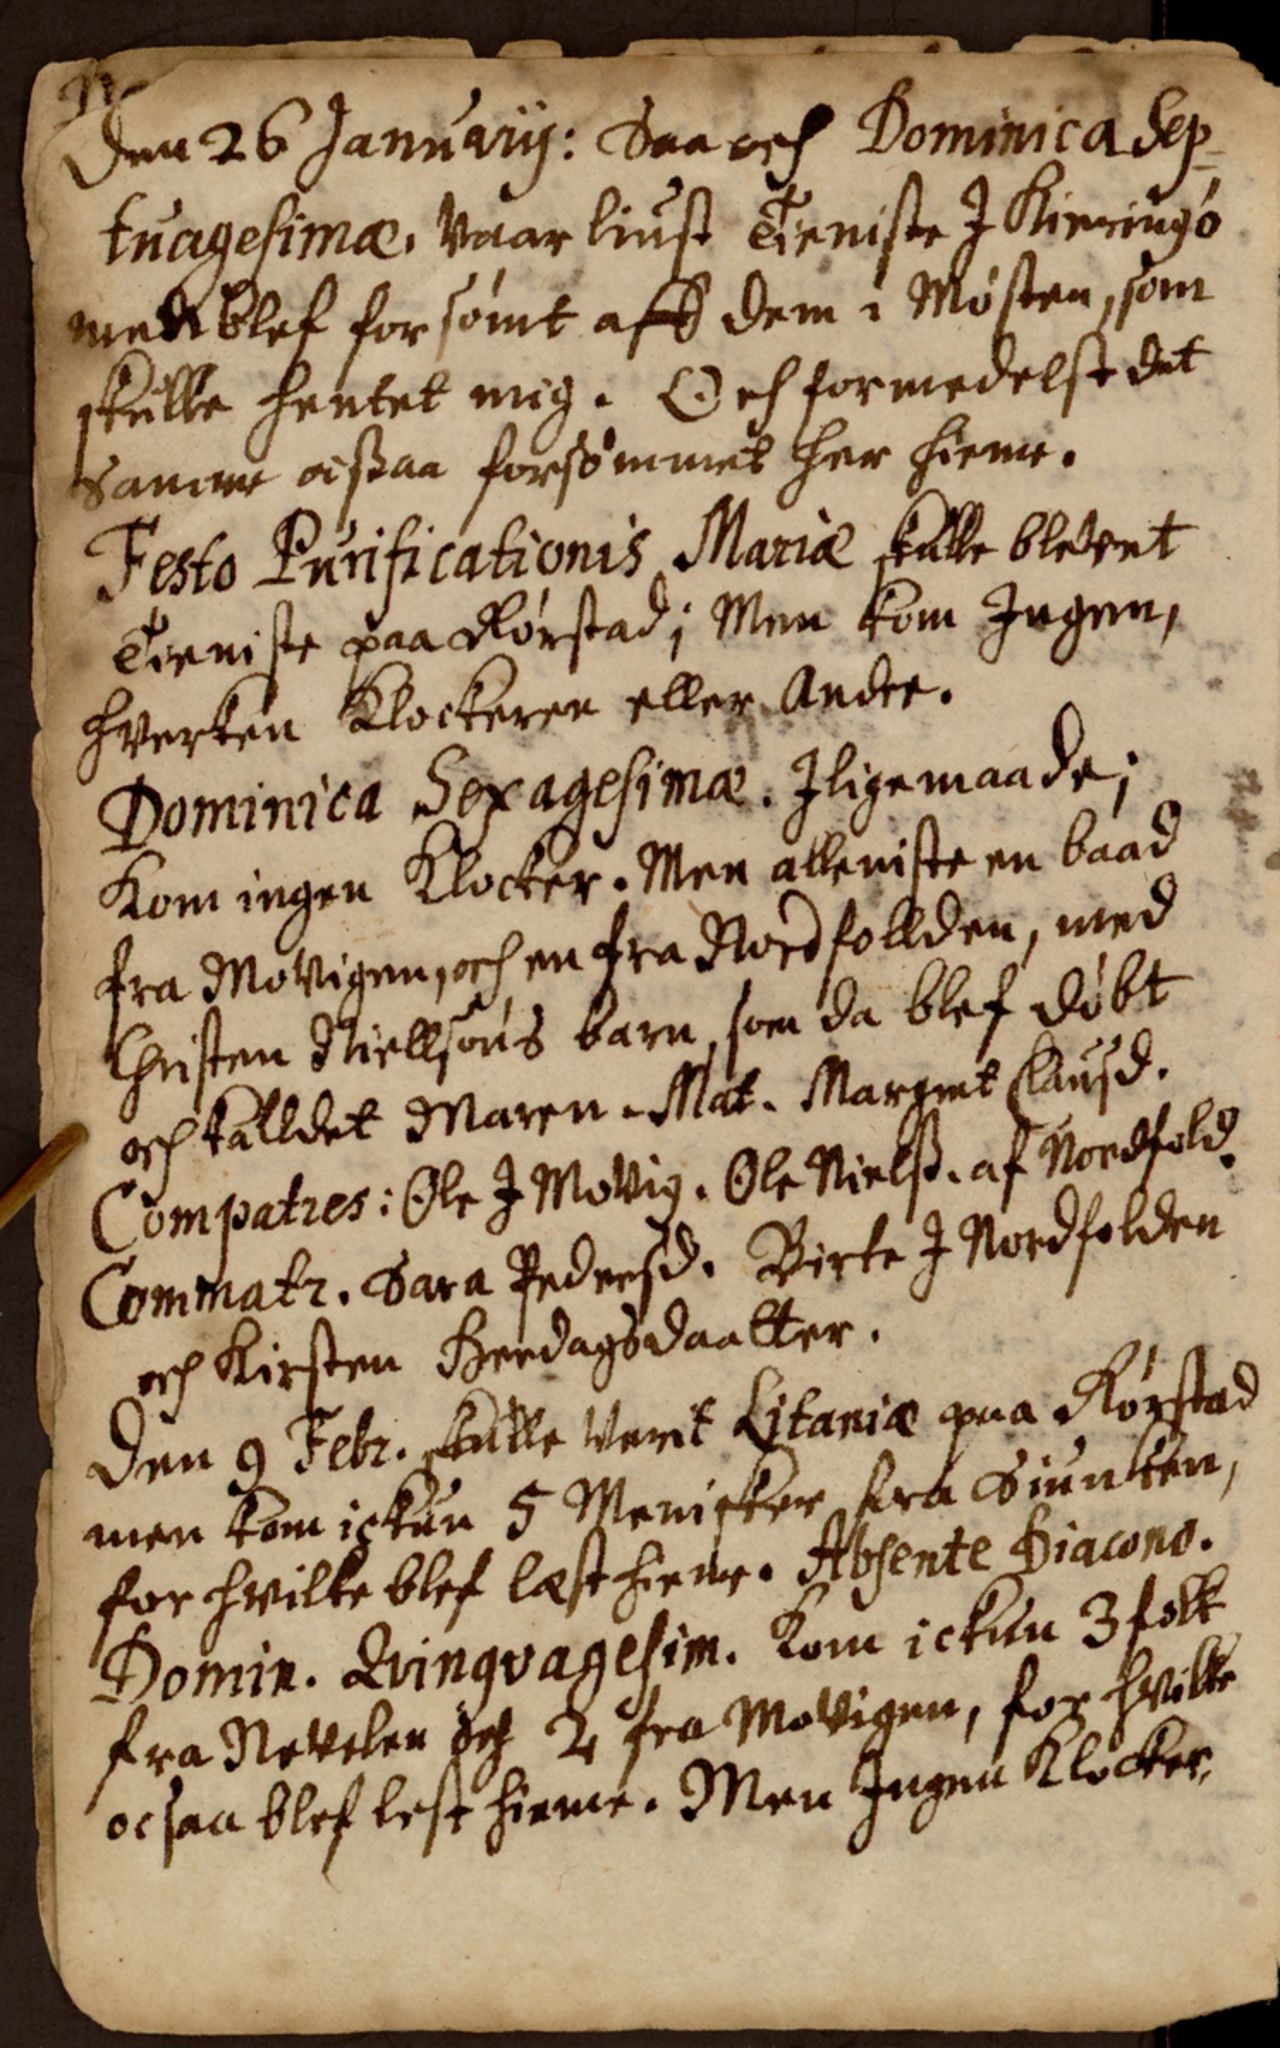 Den 26 Januarij: Saa och Dominica Sep-
tuagesimæ. Vaar liust Tieniste J Kieringø
men blef forsømt aff dem i Møsten, som
skulle hentet mig. Och formedelst det
Samme ossaa forsømmet her hieme.
Festo Purificationis Mariæ skulle blevet
Tieniste paa Rørstad; Men kom Ingen,
hverken Klockeren eller Andre.
Dominica Sexagesimæ. Jligemaade;
Kom ingen Klocker. Men alleniste en baad
fra Movigen, och en fra Nordfollden, med
Christen Niellsøns barn, som da blef døbt
och kalldet Maren. Mat. Margret Clausd.
Compatres: Ole J Movig. Ole Nielß. af Nordfold.
Commatr. Sara Pedersd. Birte J Nordfolden
och Kirsten Heedagsdaatter.
Den 9 Febr. skulle Verit Litaniæ paa Rørstad
men kom ickun 5 Menisker fra Siunken,
for hvilke blef læst hieme. Absente Diacono.
Domin. Qvinqvagesim. Kom ickun 3 folk
fra Nevelen och 2 fra Movigen, for hvilke
ocsaa blef lest hieme. Men Ingen Klocker.